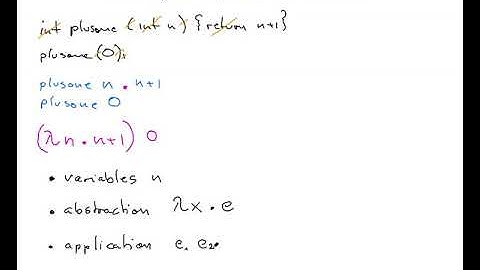 int plusone (int n) {return n+1}
plusone (0);
plusone n . n+1
plusone 0
(λn . n+1) 0
• variables n
• abstraction λx . e
• application e₁ e₂.